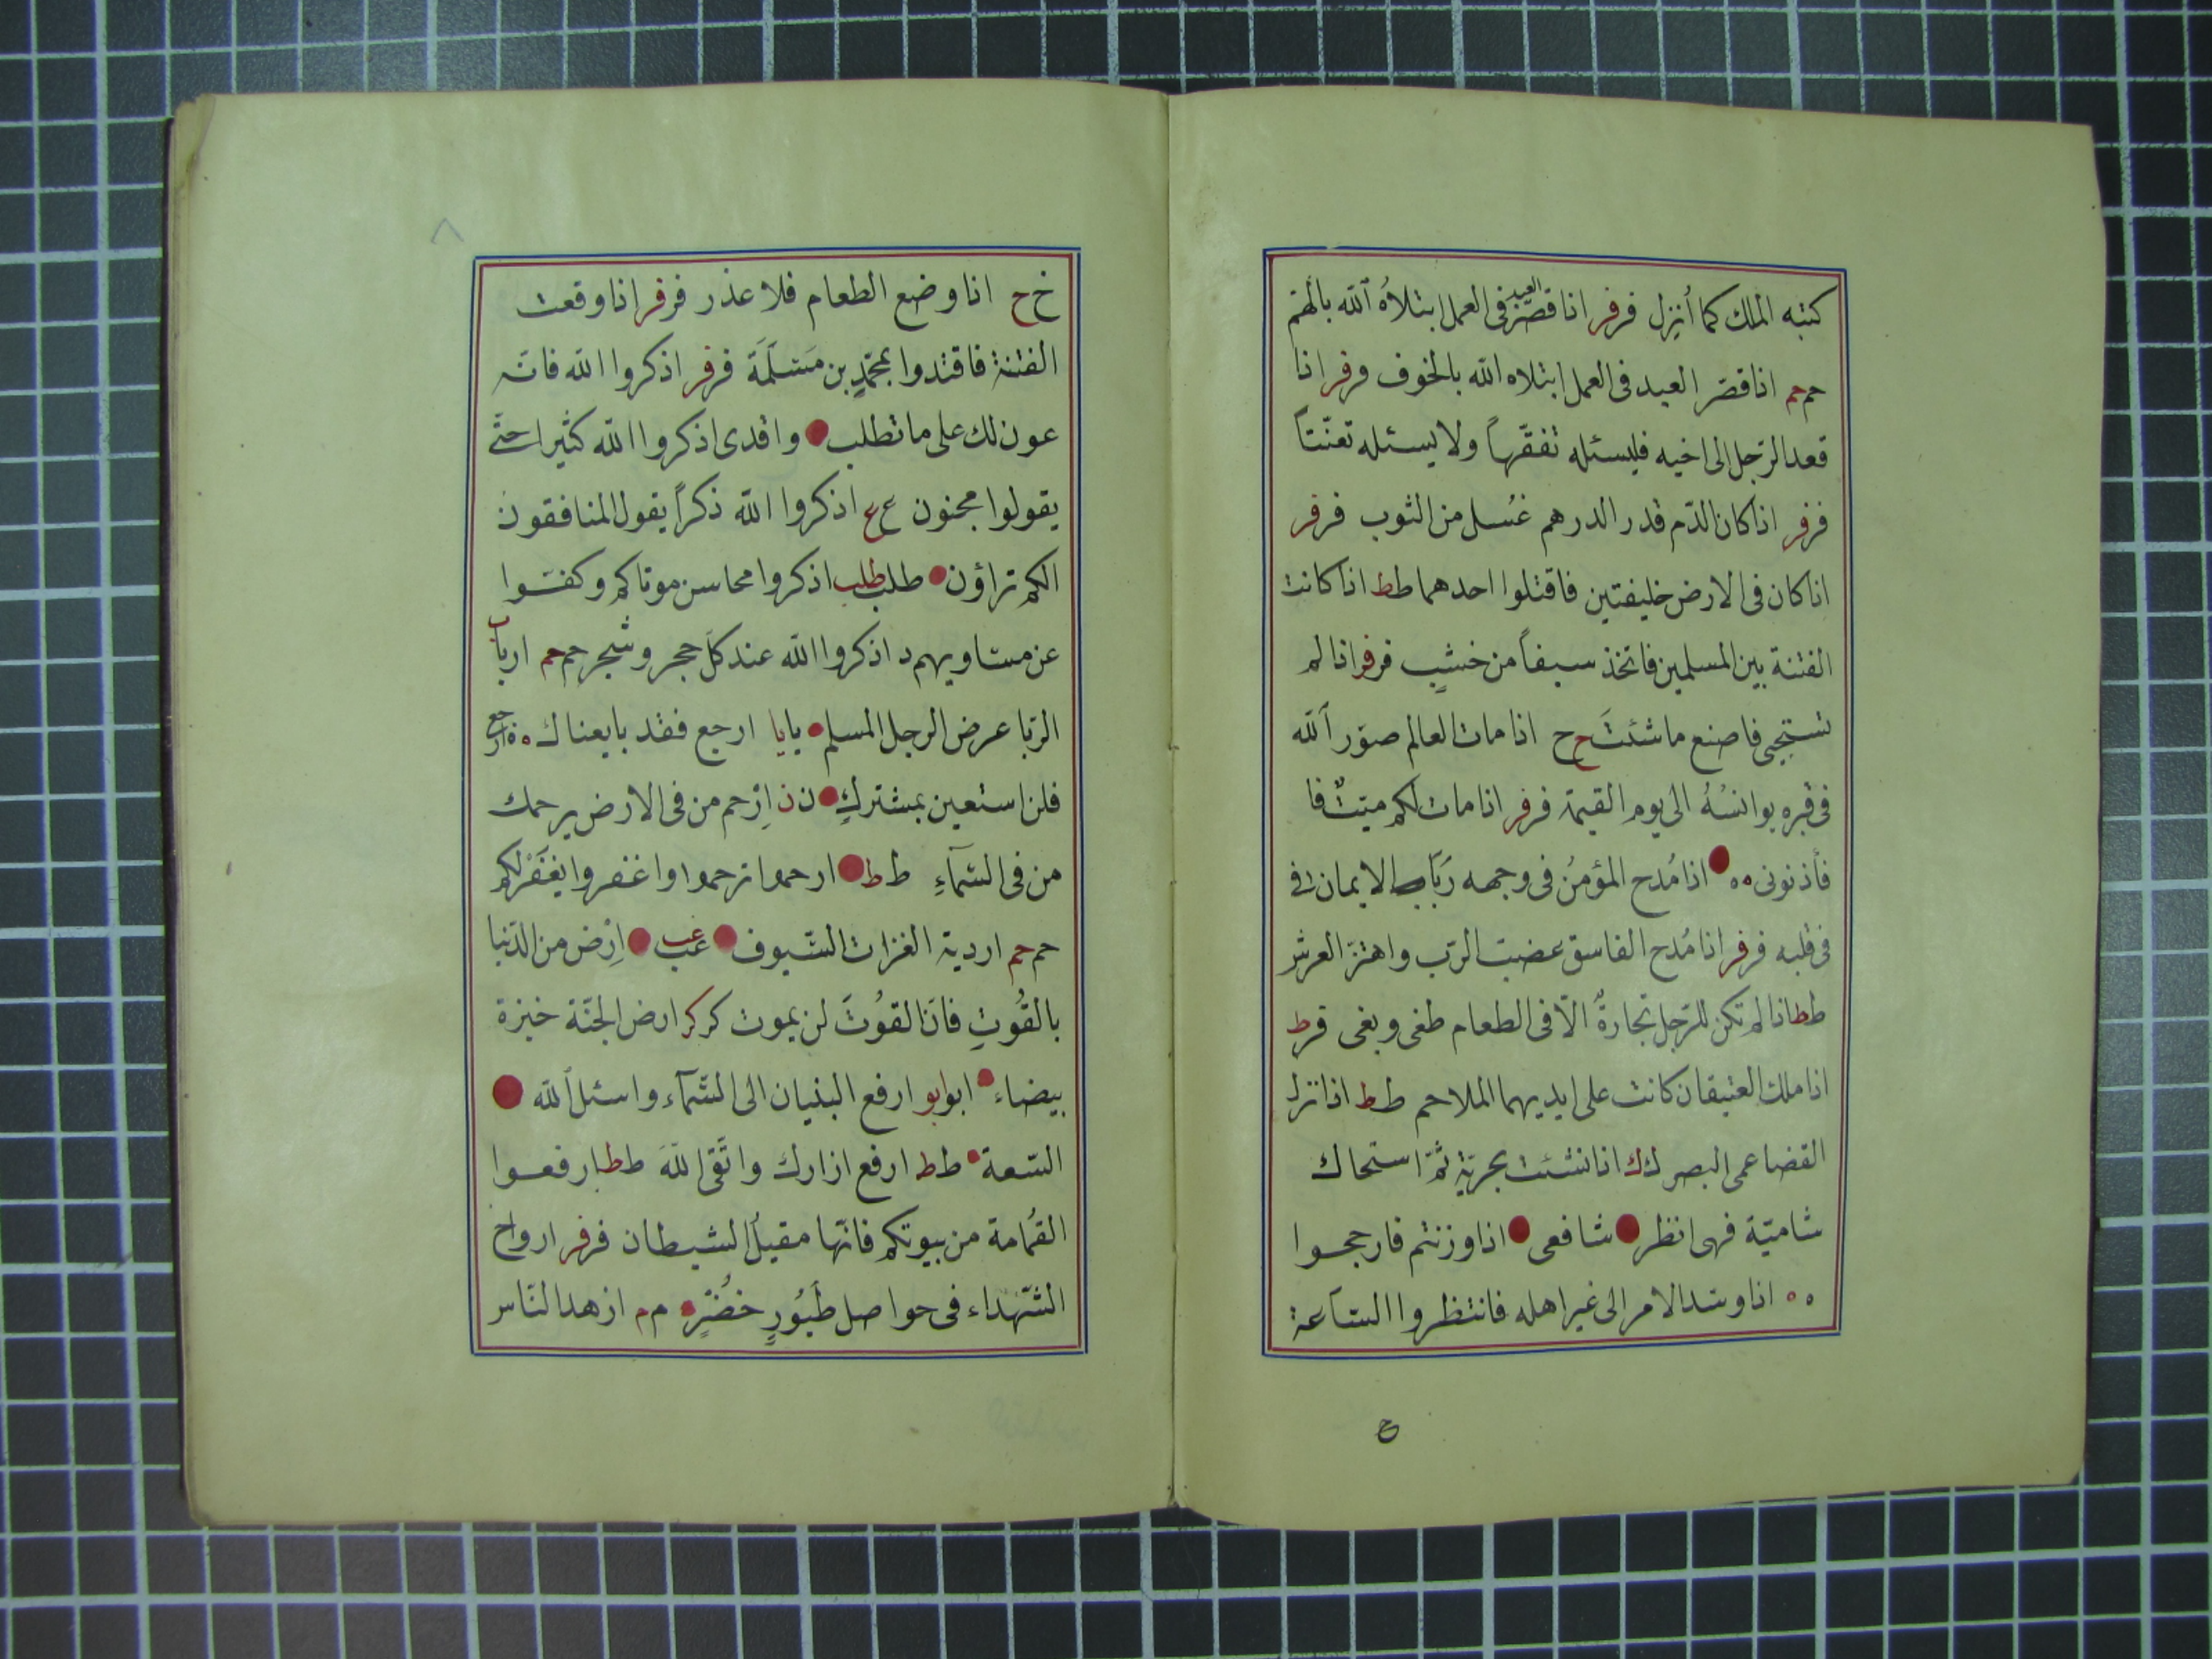 كتبه الملك كما أُنزِل فرفر اذا قصّر العبد فى العمل ابتلاهُ الله بالهمّ
حمحم اذا قصّر العبد فى العمل ابتلاه الله بالخوف فرفر اذا
قعد الرّجل الى اخيه فليسئله تفقّهاً ولا يسئله تعنّتاً
فرفر اذا كان الدّم قدر الدرهم غُسل من الثوب فرفر
اذا كان فى الارض خليفتين فاقتلوا احدهما طط اذا كانت
الفتنة بين المسلمين فاتخذ سيفاً من خشبٍ فرفر اذا لم
تستحيى فاصنع ما شئتَ حح اذا مات العالم صوّر الله
فى قبره يوانسُهُ الى يوم القيمة فرفر اذا مات لكم ميّتٌ فا
فأذنونى ٥٥ اذا مُدح المؤمنُ فى وجهه رَبَا الايمان فى
فى قلبه فرفر اذا مُدح الفاسق غضبت الرّب واهتزّ العرش
طط اذا لم تكن للرّجل تجارةٌ الّا فى الطعام طغى وبغى قرط
اذا ملك العتيقان كانت على ايديهما الملاحم طط اذا نزل
القضا عمى البصر كك اذا نشئت بحريّة ثمّ استحاك
شاميّة فهى انظر شافعى اذا وزنتم فارجحوا
٥٥ اذا وسّد الامر الى غير اهله فانتظروا السّاعة
ع
٨
خح اذا وضع الطعام فلا عذر فرفر اذا وقعت
الفتنة فاقتدوا بمحمّدٍ بن مَسْلَمَة فرفر اذكروا الله فانّه
عون لك على ما تطلب واقدى اذكروا الله كثيرا حتّى
يقولوا مجنون عع اذكروا الله ذكراً يقول المنافقون
انكم تراؤن طلب طلب اذكروا محاسن موتاكم وكفّوا
عن مساويهم د اذكروا الله عند كلّ حجر وشجر حمحم اربا
الرّبا عرض الرجل المسلم يايا ارجع فقد بايعناك ٥٥ ارجع
فلن استعين بمشركٍ نن اِرْحم من فى الارض يرحمك
من فى السّمآءِ طط ارحموا ترحموا واغفروا يغفَرْ لكم
حمحم اردية الغزات السّيوف عب عب اِرْض من الدّنيا
بالقُوتِ فانّ القُوتَ لن يموت كركر ارض الجنّة خبزة
بيضاء ابوابو ارفع البنيان الى السّمآء واسئل الله
السّعة طط ارفع ازارك واتّقى اللهَ طط ارفعوا
القُمامة من بيوتكم فانّها مقيلُ الشيطان فرفر ارواح
الشّهداء فى حواصل طَيُورٍ خُضْرٍ مم ازهد النّاس